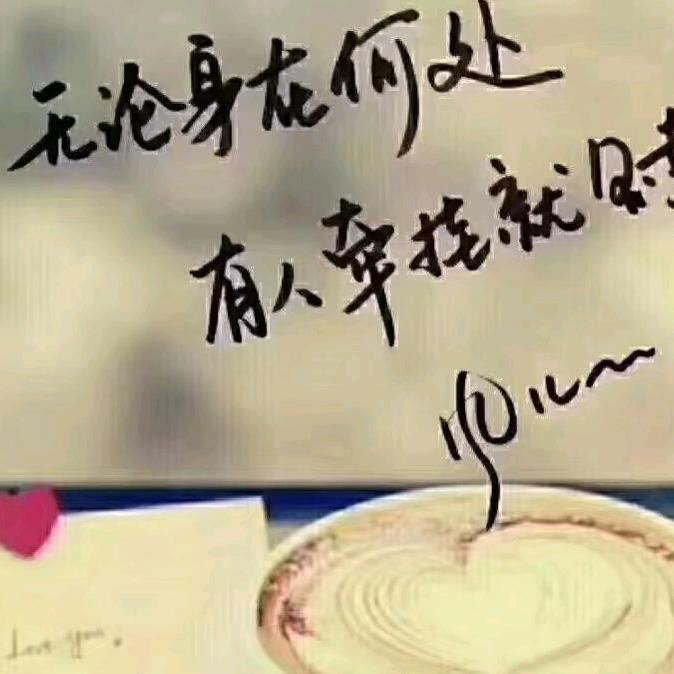 无论身在何处
有人牵挂就
love you.